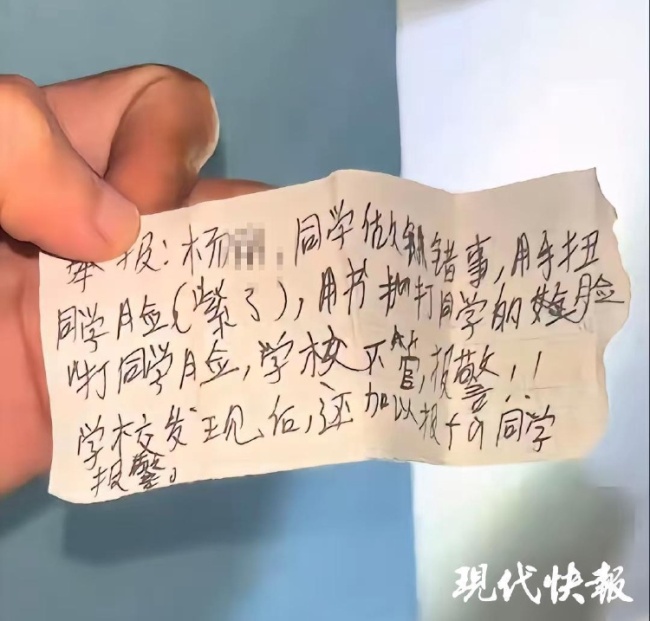 举报：杨 同学做错事，用手扭
同学脸（紫了），用书抽打同学的脸
叫打同学脸，学校不管，报警！！
学校发现后，还加以报 同学
报警。
现代快報